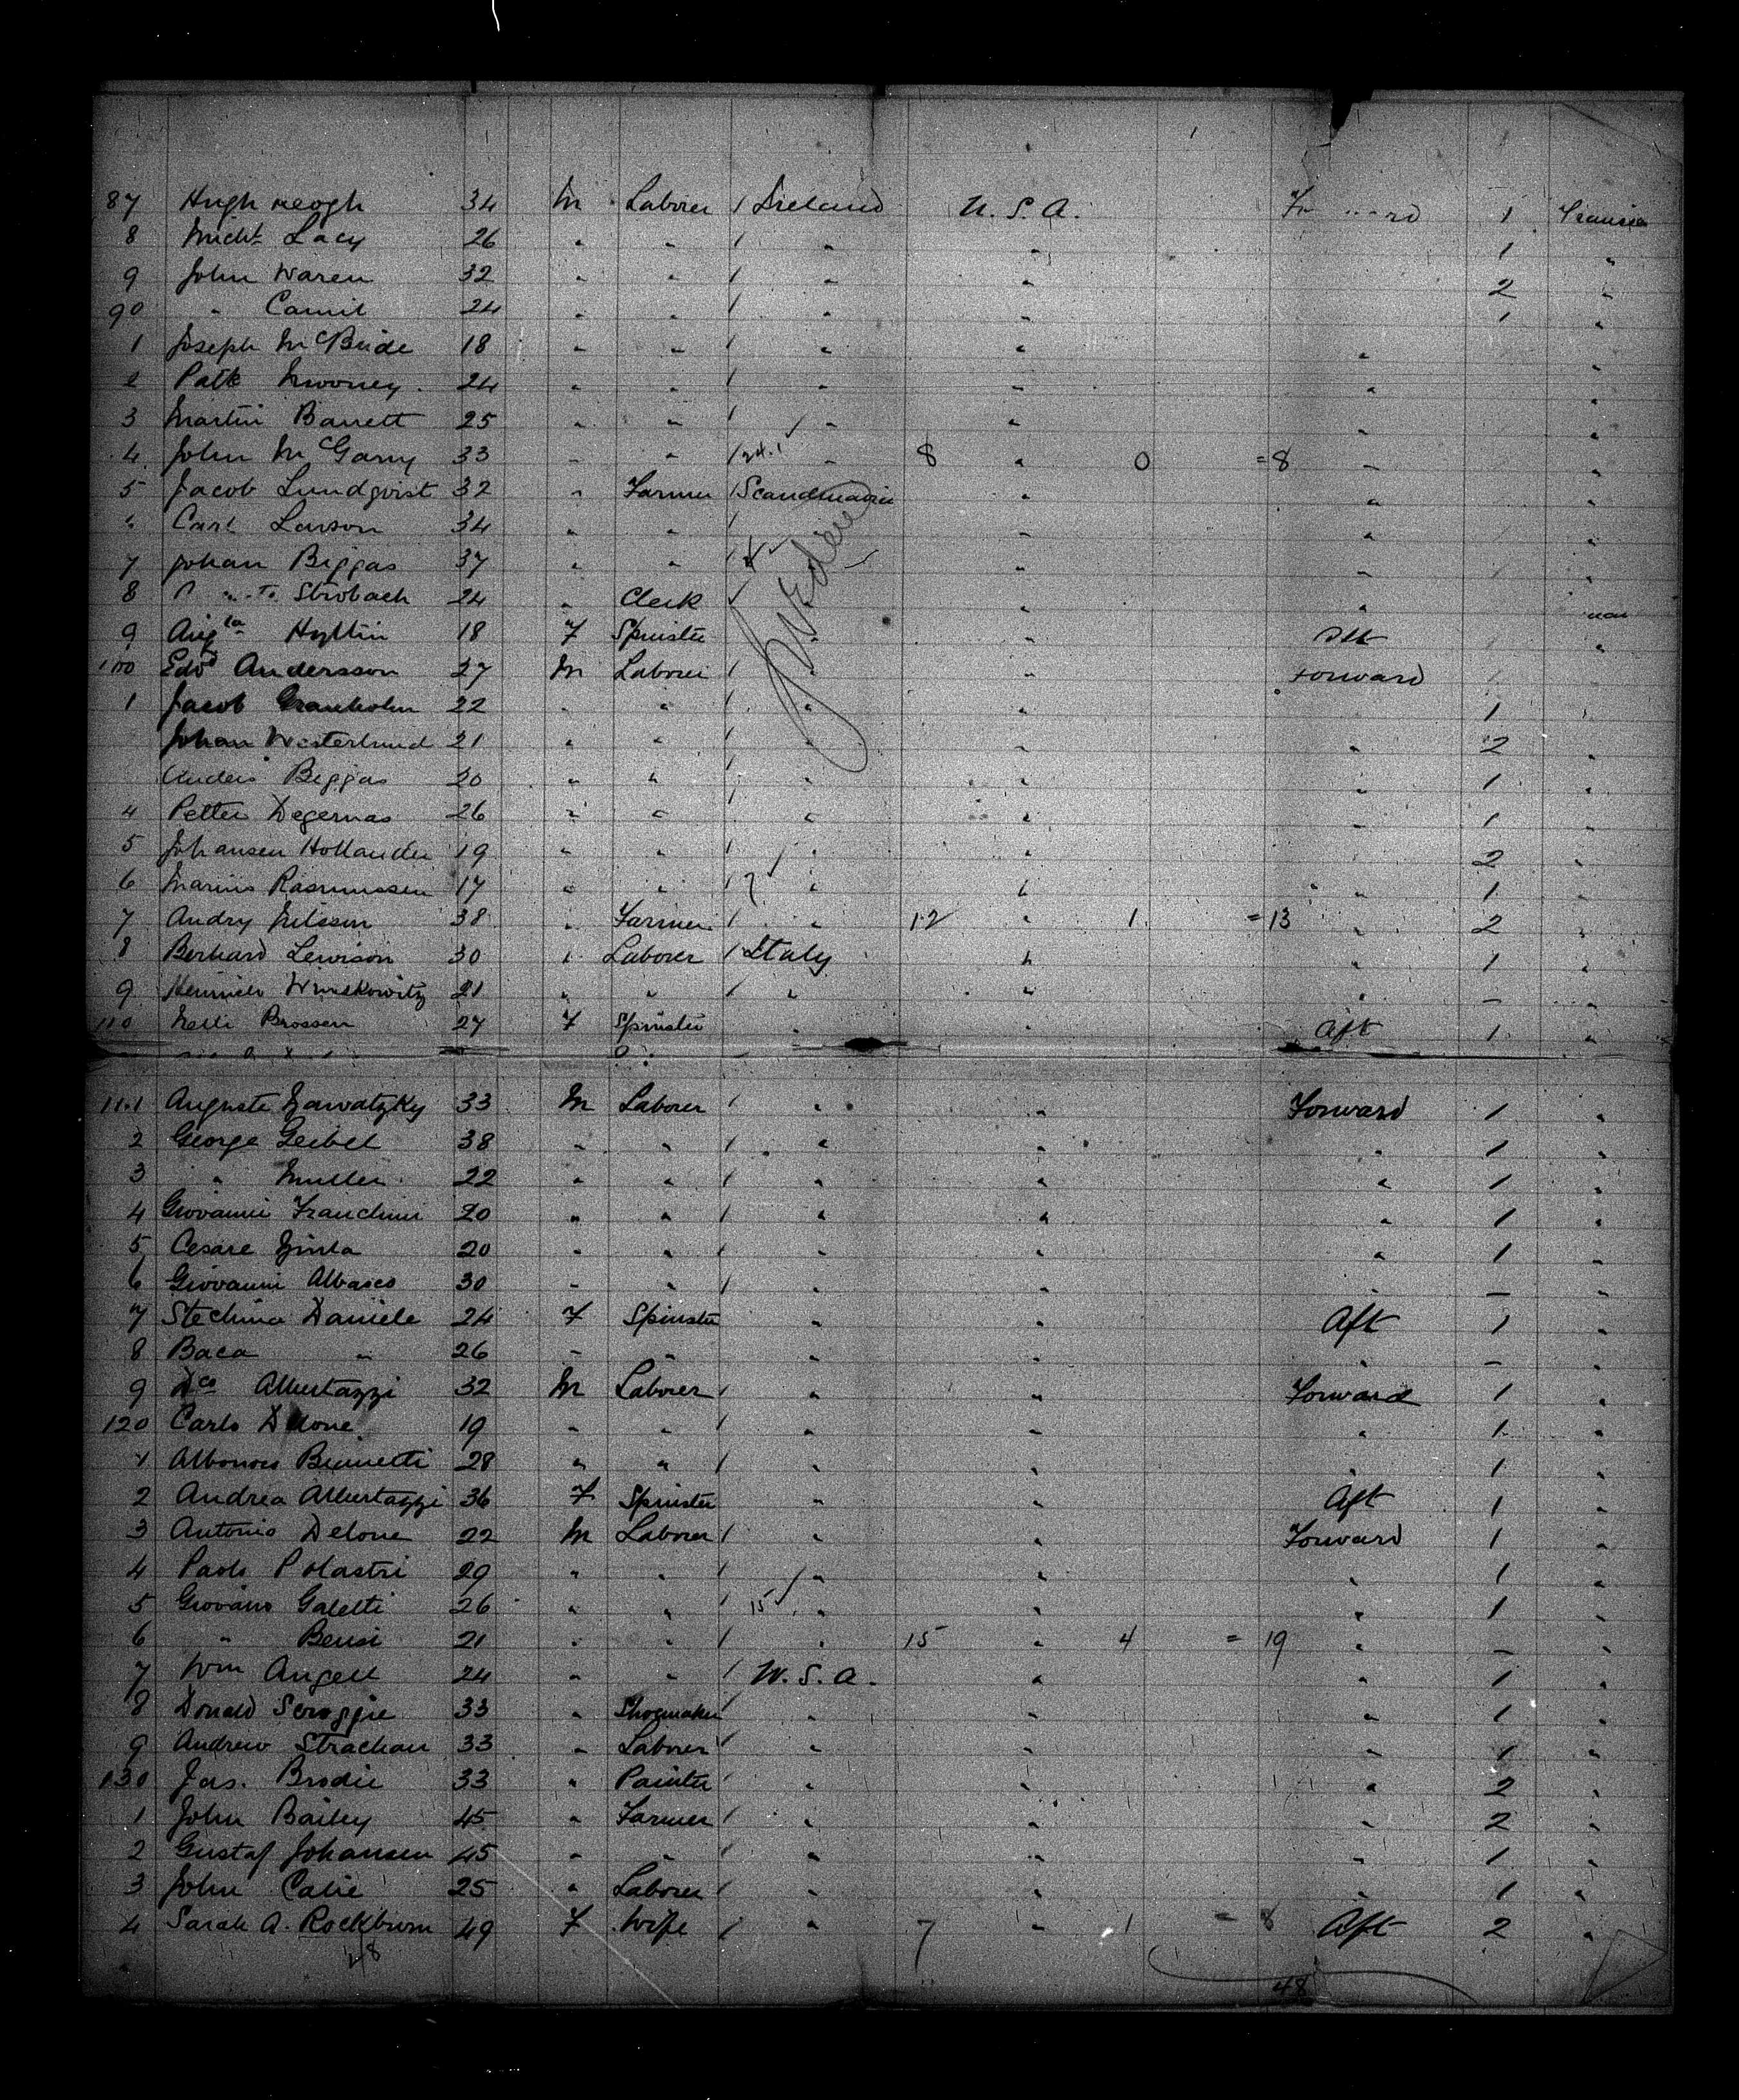 87 Hugh Keogh 34 M Laborer / Ireland U.S.A. 1
8 Micht Lacy 26 " " / " " 1 "
9 John Waren 32 " " / " " 2 "
90 " Camit 24 " " / " " 1 "
1 Joseph McBride 18 " " / " " " "
2 Patk Mooney 24 " " / " " " "
3 Martin Barrett 25 " " / " " " "
4 John McGarry 33 " " / " 8 " 0 =8 " "
5 Jacob Lundqvist 32 " Farmer / Scandinavia " " "
" Carl Larson 34 " " / " " "
Sweden
7 Johan Biggas 37 " " / " " "
8 Strobach 24 " Clerk " "
9 Augta Hyltin 18 F Spinster " " Aft "
100 Edwd Andersson 27 M Laborer / " Forward
1 Jacob Granholm 22 " " / " " 1 "
Johan Westerlund 21 " " / " " 2 "
Anders Biggas 20 " " / " " " 1 "
4 Petter Degernas 26 " " / " " " 1 "
5 Johansen Hollander 19 " " / " " 2 "
6 Marius Rasmussen 17 " " / " " " 1 "
7 Andry Nilsson 38 " Farmer / " 12 " 1 =13 " 2 "
8 Berhard Lewison 30 " Laborer / Italy " " 1 "
9 Heinrich Winskowitz 21 " " / " " " - "
110 Nelli Brossen 27 F Spinster " " Aft 1 "
111 Auguste Zawatzky 33 M Laborer / " " Forward 1 "
2 George Geibel 38 " " / " " " 1 "
3 " Muller 22 " " / " " " 1 "
4 Giovanni Franchini 20 " " / " " " 1 "
5 Cesare 20 " " / " " " 1 "
6 Giovanni Albasco 30 " " / " " " - "
7 Stechina Daniele 24 F Spinster " " Aft 1 "
8 Baca " 26 " " " " " - "
9 Dco Albertazzi 32 M Laborer / " " Forward 1 "
120 Carlo Delone 19 " " / " " " 1 "
1 Binnetti 28 " " / " " " 1 "
2 Andrea Albertazzi 36 F Spinster " " Aft 1 "
3 Antonio Delone 22 M Laborer / " " Forward 1 "
4 Paolo Polastri 29 " " / " " " 1 "
5 Giovano Galetti 26 " " / 15 " " " 1 "
6 " Bensi 21 " " / " 15 " 4 = 19 " - "
7 Wm Angell 24 " " / U.S.A. " " 1 "
8 Donald Scroggie 33 " Shoemaker / " " " 1 "
9 Andrew Strachan 33 " Laborer / " " " 1 "
130 Jas. Brodie 33 " Painter / " " " 2 "
1 John Bailey 45 " Farmer / " " " 2 "
2 Gustaf Johansen 45 " " / " " " 1 "
3 John Calie 25 " Laborer / " " " 1 "
4 Sarah A. Rockburn 49 F Wife / " 7 " 1 = 8 Aft 2 "
48
48